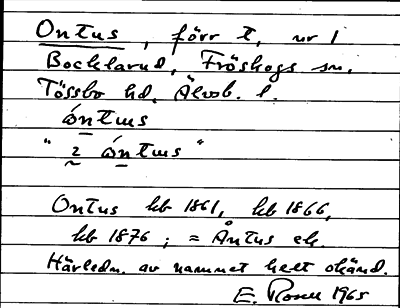 Ontus, förr t, nr 1
Bocklarud, Fröskogs sn.
Tössbo hd. Älvsb. l.
ó̱ntus
" i ó̱ntus "
Ontus kb 1861, kb 1866,
kb 1876 ; = Åntus ek.
Härledn. av namnet helt okänd.
E. Rosell 1965